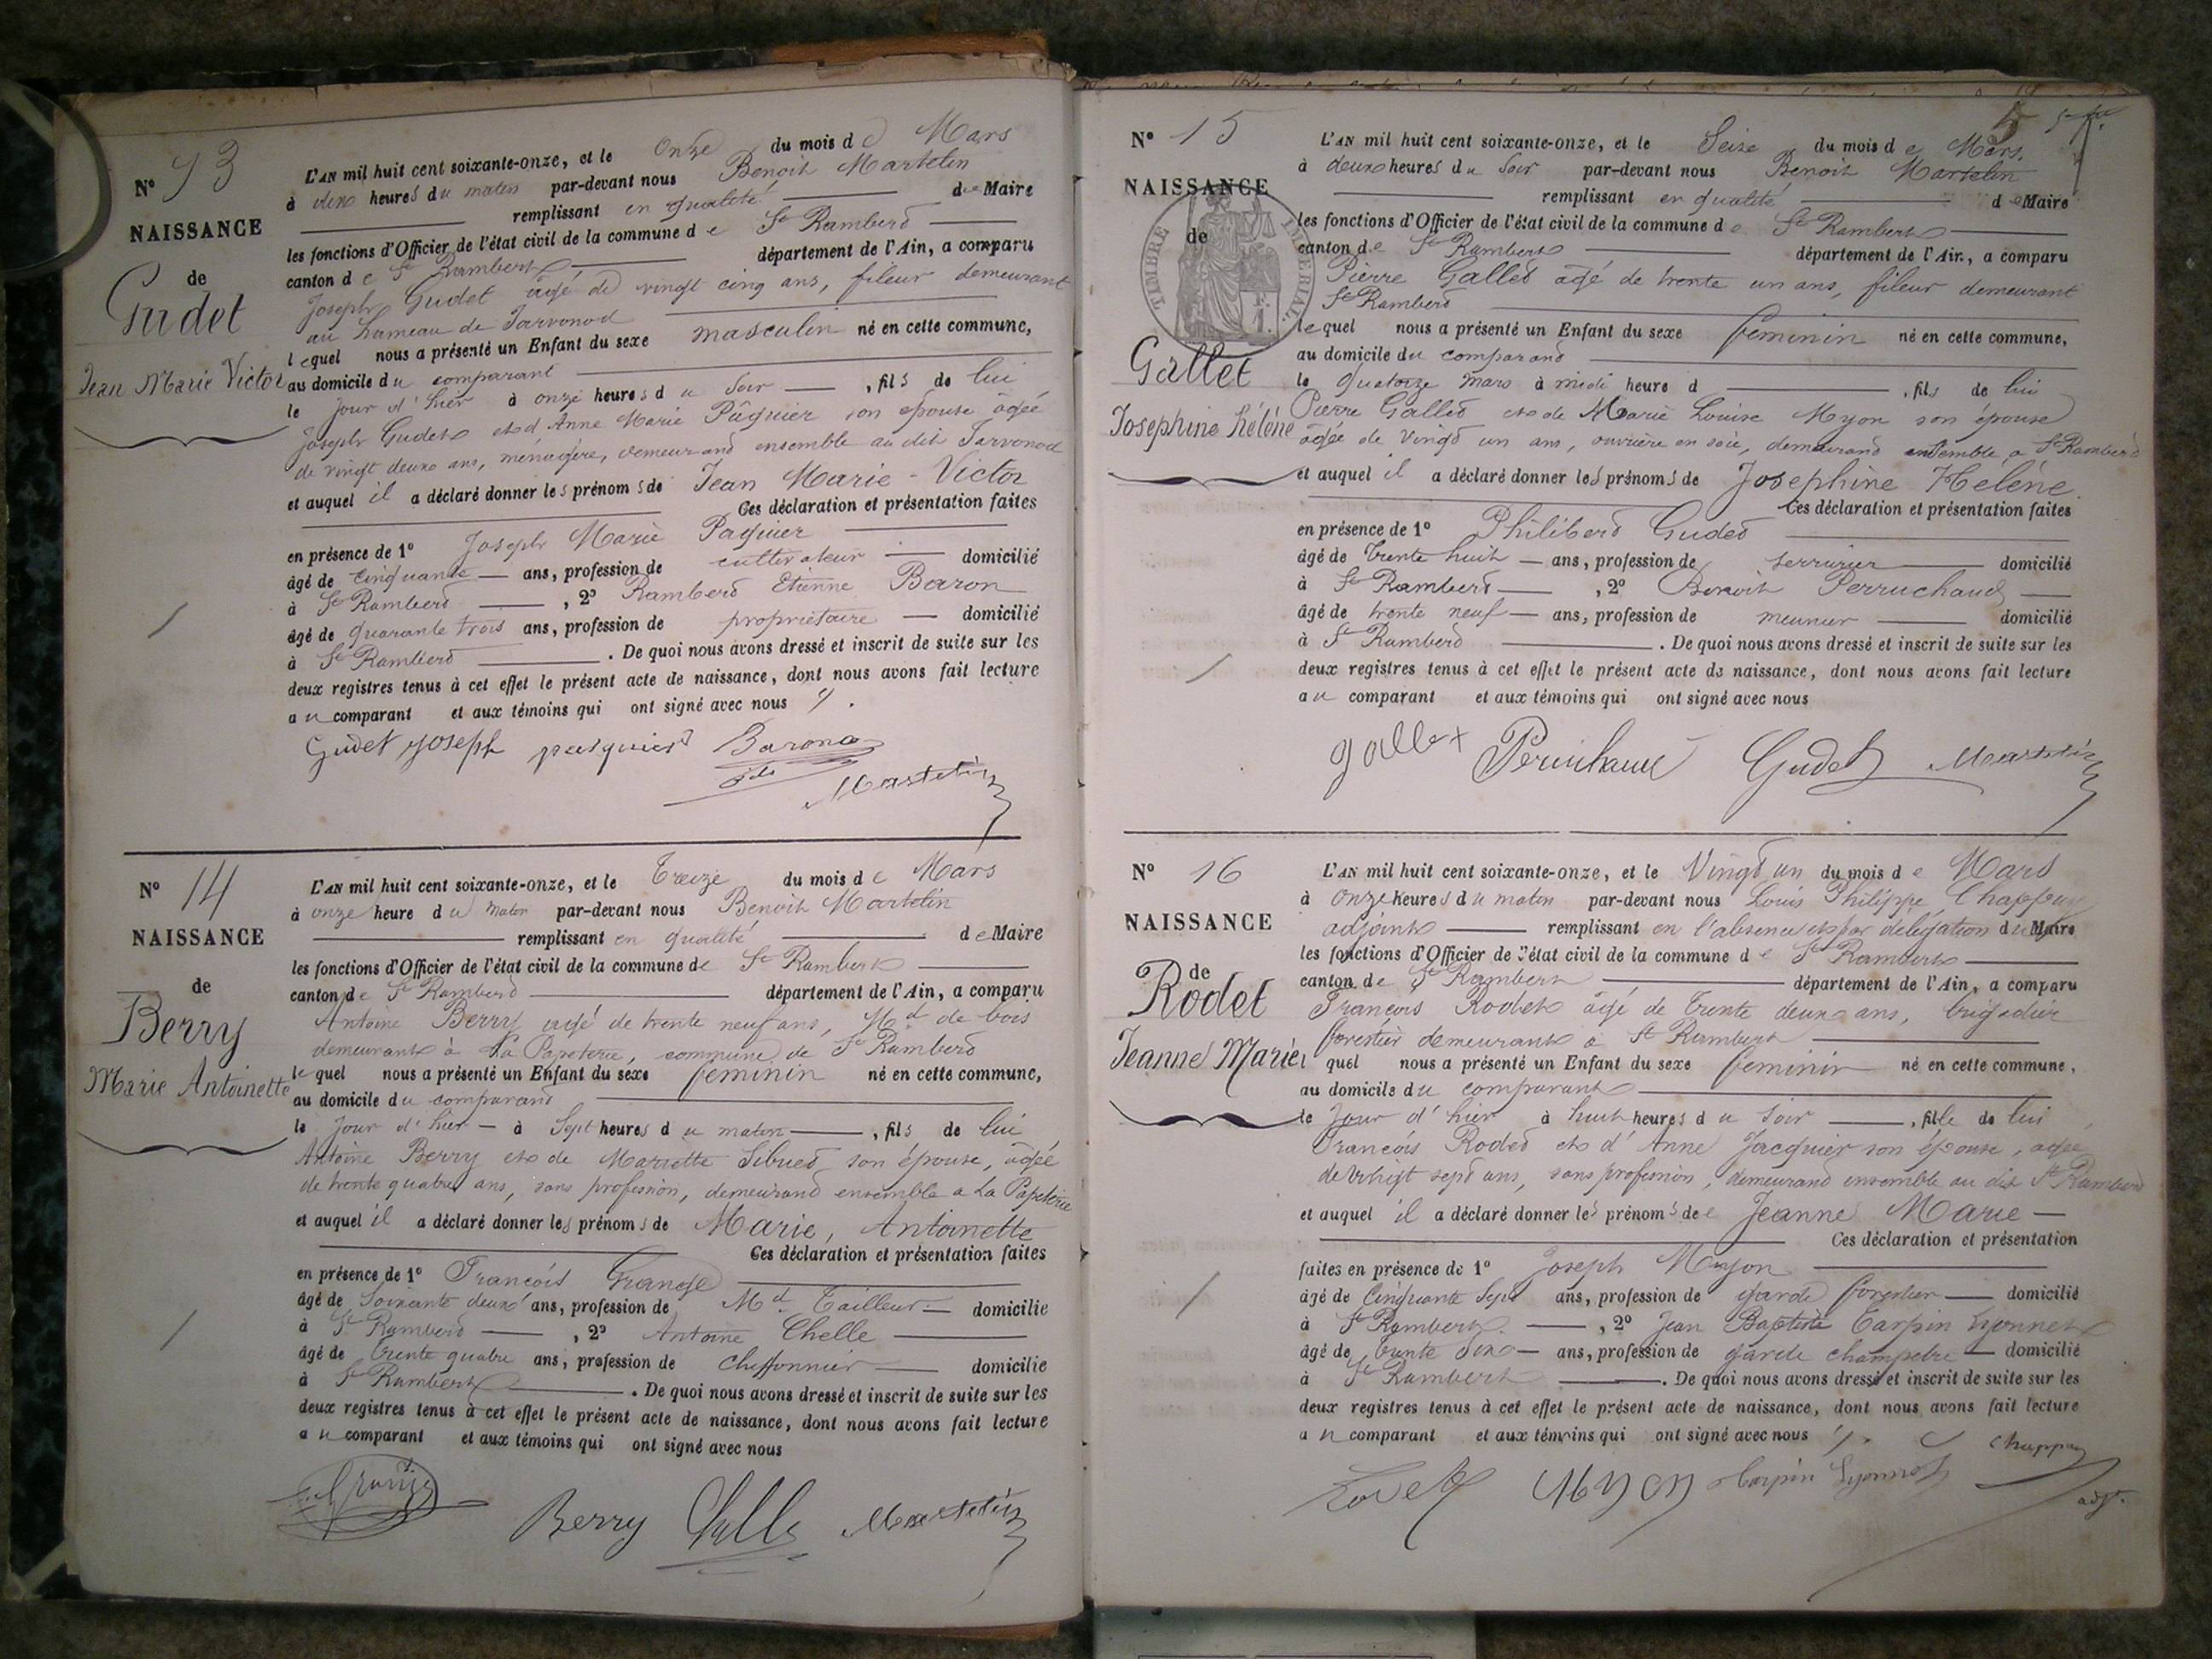 N° 13
NAISSANCE
de
Gudet
Jean Marie Victor
L'AN mil huit cent soixante-onze, et le Onze du mois de Mars
à dix heures du matin par-devant nous Benoit Martelin
remplissant en qualité de Maire
les fonctions d'Officier de l'état civil de la commune de St Rambert
canton de St Rambert département de l'Ain, a comparu
Joseph Gudet agé de vingt cinq ans, fileur demeurant
au hameau de Javornod
lequel nous a présenté un Enfant du sexe masculin né en cette commune,
au domicile du comparant
le jour d'hier à onze heures du soir, fils de lui
Joseph Gudet et d'Anne Marie Pâquier son épouse âgée
de vingt deux ans, ménagère, demeurant ensemble au dit Javornod
et auquel il a déclaré donner les prénoms de Jean Marie-Victor
Ces déclaration et présentation faites
en présence de 1° Joseph Marie Paquier
âgé de cinquante ans, profession de cultivateur domicilié
à St Rambert, 2° Rambert Etienne Baron
âgé de quarante trois ans, profession de propriétaire domicilié
à St Rambert. De quoi nous avons dressé et inscrit de suite sur les
deux registres tenus à cet effet le présent acte de naissance, dont nous avons fait lecture
au comparant et aux témoins qui ont signé avec nous
Gudet joseph pasquier Baron
Martelin
N° 14
NAISSANCE
de
Berry
Marie Antoinette
L'AN mil huit cent soixante-onze, et le Treize du mois de Mars
à onze heure du matin par-devant nous Benoit Martelin
remplissant en qualité de Maire
les fonctions d'Officier de l'état civil de la commune de St Rambert
canton de St Rambert département de l'Ain, a comparu
Antoine Berry agé de trente neuf ans, Md de bois
demeurant à La Papeterie, commune de St Rambert
lequel nous a présenté un Enfant du sexe feminin né en cette commune,
au domicile du comparant
le jour d'hier à Sept heures du matin, fils de lui
Antoine Berry et de Mariette Sibuet son épouse, âgée
de trente quatre ans, sans profession, demeurant ensemble a La Papeterie
et auquel il a déclaré donner les prénoms de Marie, Antoinette
Ces déclaration et présentation faites
en présence de 1° François Grange
âgé de Soixante deux ans, profession de Md Tailleur domicilié
à St Rambert, 2° Antoine Chelle
âgé de trente quatre ans, profession de Chiffonnier domicilié
à St Rambert. De quoi nous avons dressé et inscrit de suite sur les
deux registres tenus à cet effet le présent acte de naissance, dont nous avons fait lecture
au comparant et aux témoins qui ont signé avec nous
Berry Martelin
N° 15
NAISSANCE
de
TIMBRE IMPERIAL
Gallet
Josephine Héléne
L'AN mil huit cent soixante-onze, et le Seize du mois de Mars.
à deux heures du Soir par-devant nous Benoit Martelin
remplissant en qualité de Maire
les fonctions d'Officier de l'état civil de la commune de St Rambert
canton de St Rambert département de l'Ain, a comparu
Pierre Gallet âgé de trente un ans, fileur demeurant
St Rambert
lequel nous a présenté un Enfant du sexe feminin né en cette commune,
au domicile du comparant
le quatorze mars à midi heure d, fils de lui
Pierre Gallet et de Marie Louise Myon son épouse
âgée de Vingt un ans, ouvrière en soie, demeurant ensemble a St Rambert
et auquel il a déclaré donner les prénoms de Josephine Héléne
Ces déclaration et présentation faites
en présence de 1° Philibert Gudet
âgé de Trente huit ans, profession de serrurier domicilié
à St Rambert, 2° Benoit Perruchaud
âgé de trente neuf ans, profession de meunier domicilié
à St Rambert. De quoi nous avons dressé et inscrit de suite sur les
deux registres tenus à cet effet le présent acte de naissance, dont nous avons fait lecture
au comparant et aux témoins qui ont signé avec nous
gallet Gudet Martelin
N° 16
NAISSANCE
de
Rodet
Jeanne Marie
L'AN mil huit cent soixante-onze, et le Vingt un du mois de Mars
à Onze heures du matin par-devant nous Louis Philippe Chappuy
adjoint remplissant en l'absence et par délégation du Maire
les fonctions d'Officier de l'état civil de la commune de St Rambert
canton de St Rambert département de l'Ain, a comparu
François Rodet âgé de Trente deux ans, brigadier
forestier demeurant a St Rambert
lequel nous a présenté un Enfant du sexe feminin né en cette commune,
au domicile du comparant
le jour d'hier à huit heures du soir, fille de lui
François Rodet et d'Anne Jacquier son épouse, agée
de vingt sept ans, sans profession, demeurant ensemble au dit St Rambert
et auquel il a déclaré donner les prénoms de Jeanne Marie
Ces déclaration et présentation
faites en présence de 1° Joseph Myon
âgé de Cinquante Sept ans, profession de garde forestier domicilié
à St Rambert, 2° Jean Baptiste Carpin Lyonnet
âgé de trente Six ans, profession de garde champetre domicilié
à St Rambert. De quoi nous avons dressé et inscrit de suite sur les
deux registres tenus à cet effet le présent acte de naissance, dont nous avons fait lecture
au comparant et aux témoins qui ont signé avec nous
Rodet Myon Carpin Lyonnet Chappuy
adjt.